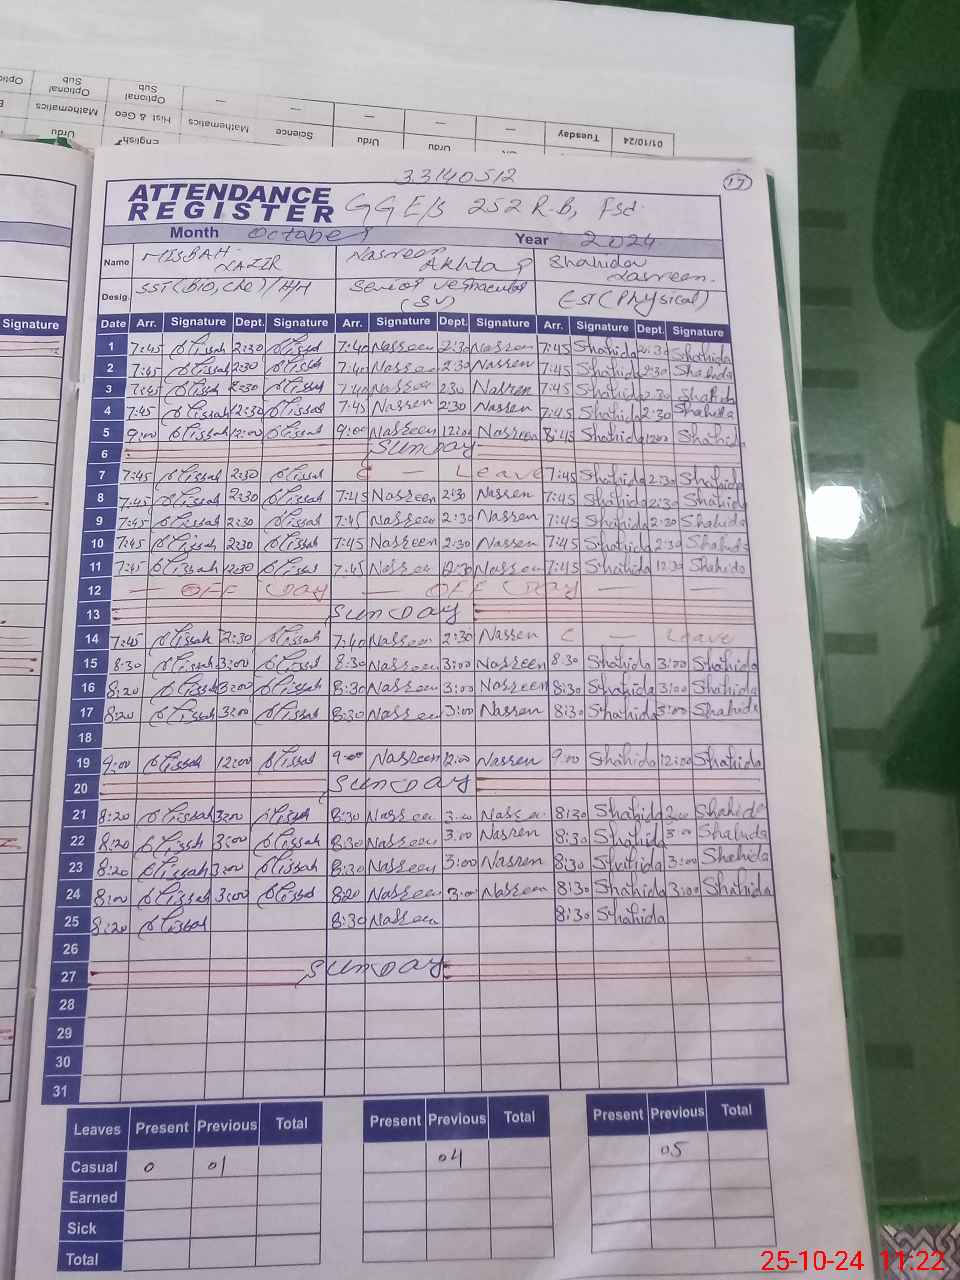 01/10/24 Tuesday — — — Science — —
Urdu Urdu Mathematics Hist & Geo Mathematics
English Urdu
Optional Sub Optional Sub
33140512
17
ATTENDANCE REGISTER GGE/S 252 R-B, Fsd.
Month October Year 2024
Name MISBAH NAZIR Nasreen Akhtar Shahida Nasreen.
Desig. SST(BIO, Che)/H/H Senior Vernacular (SV) EST(Physical)
Signature
Date Arr. Signature Dept. Signature Arr. Signature Dept. Signature Arr. Signature Dept. Signature
1 7:45 Missah 2:30 Missah 7:40 Nasreen 2:30 Nasreen 7:45 Shahida 2:30 Shahida
2 7:45 Missah 2:30 Missah 7:40 Nasreen 2:30 Nasreen 7:45 Shahida 2:30 Shahida
3 7:45 Missah 2:30 Missah 7:40 Nasreen 2:30 Nasreen 7:45 Shahida 2:30 Shahida
4 7:45 Missah 2:30 Missah 7:45 Nasreen 2:30 Nasreen 7:45 Shahida 2:30 Shahida
5 9:00 Missah 12:00 Missah 9:00 Nasreen 12:00 Nasreen 8:45 Shahida 12:00 Shahida
6 SUNDAY
7 7:45 Missah 2:30 Missah C — Leave 7:45 Shahida 2:30 Shahida
8 7:45 Missah 2:30 Missah 7:45 Nasreen 2:30 Nasreen 7:45 Shahida 2:30 Shahida
9 7:45 Missah 2:30 Missah 7:45 Nasreen 2:30 Nasreen 7:45 Shahida 2:30 Shahida
10 7:45 Missah 2:30 Missah 7:45 Nasreen 2:30 Nasreen 7:45 Shahida 2:30 Shahida
11 7:45 Missah 12:30 Missah 7:45 Nasreen 12:30 Nasreen 7:45 Shahida 12:30 Shahida
12 — OFF Day — OFF Day — — —
13 SUNDAY
14 7:45 Missah 2:30 Missah 7:40 Nasreen 2:30 Nasreen C — Leave
15 8:30 Missah 3:00 Missah 8:30 Nasreen 3:00 Nasreen 8:30 Shahida 3:00 Shahida
16 8:20 Missah 3:00 Missah 8:30 Nasreen 3:00 Nasreen 8:30 Shahida 3:00 Shahida
17 8:20 Missah 3:00 Missah 8:30 Nasreen 3:00 Nasreen 8:30 Shahida 3:00 Shahida
18
19 9:00 Missah 12:00 Missah 9:00 Nasreen 12:00 Nasreen 9:00 Shahida 12:00 Shahida
20 SUNDAY
21 8:20 Missah 3:00 Missah 8:30 Nasreen 3:00 Nasreen 8:30 Shahida 3:00 Shahida
22 8:20 Missah 3:00 Missah 8:30 Nasreen 3:00 Nasreen 8:30 Shahida 3:00 Shahida
23 8:20 Missah 3:00 Missah 8:30 Nasreen 3:00 Nasreen 8:30 Shahida 3:00 Shahida
24 8:00 Missah 3:00 Missah 8:20 Nasreen 3:00 Nasreen 8:30 Shahida 3:00 Shahida
25 8:20 Missah 8:30 Nasreen 8:30 Shahida
26
27 SUNDAY
28
29
30
31
Leaves Present Previous Total Present Previous Total Present Previous Total
Casual 0 01 04 05
Earned
Sick
Total
25-10-24 11:22